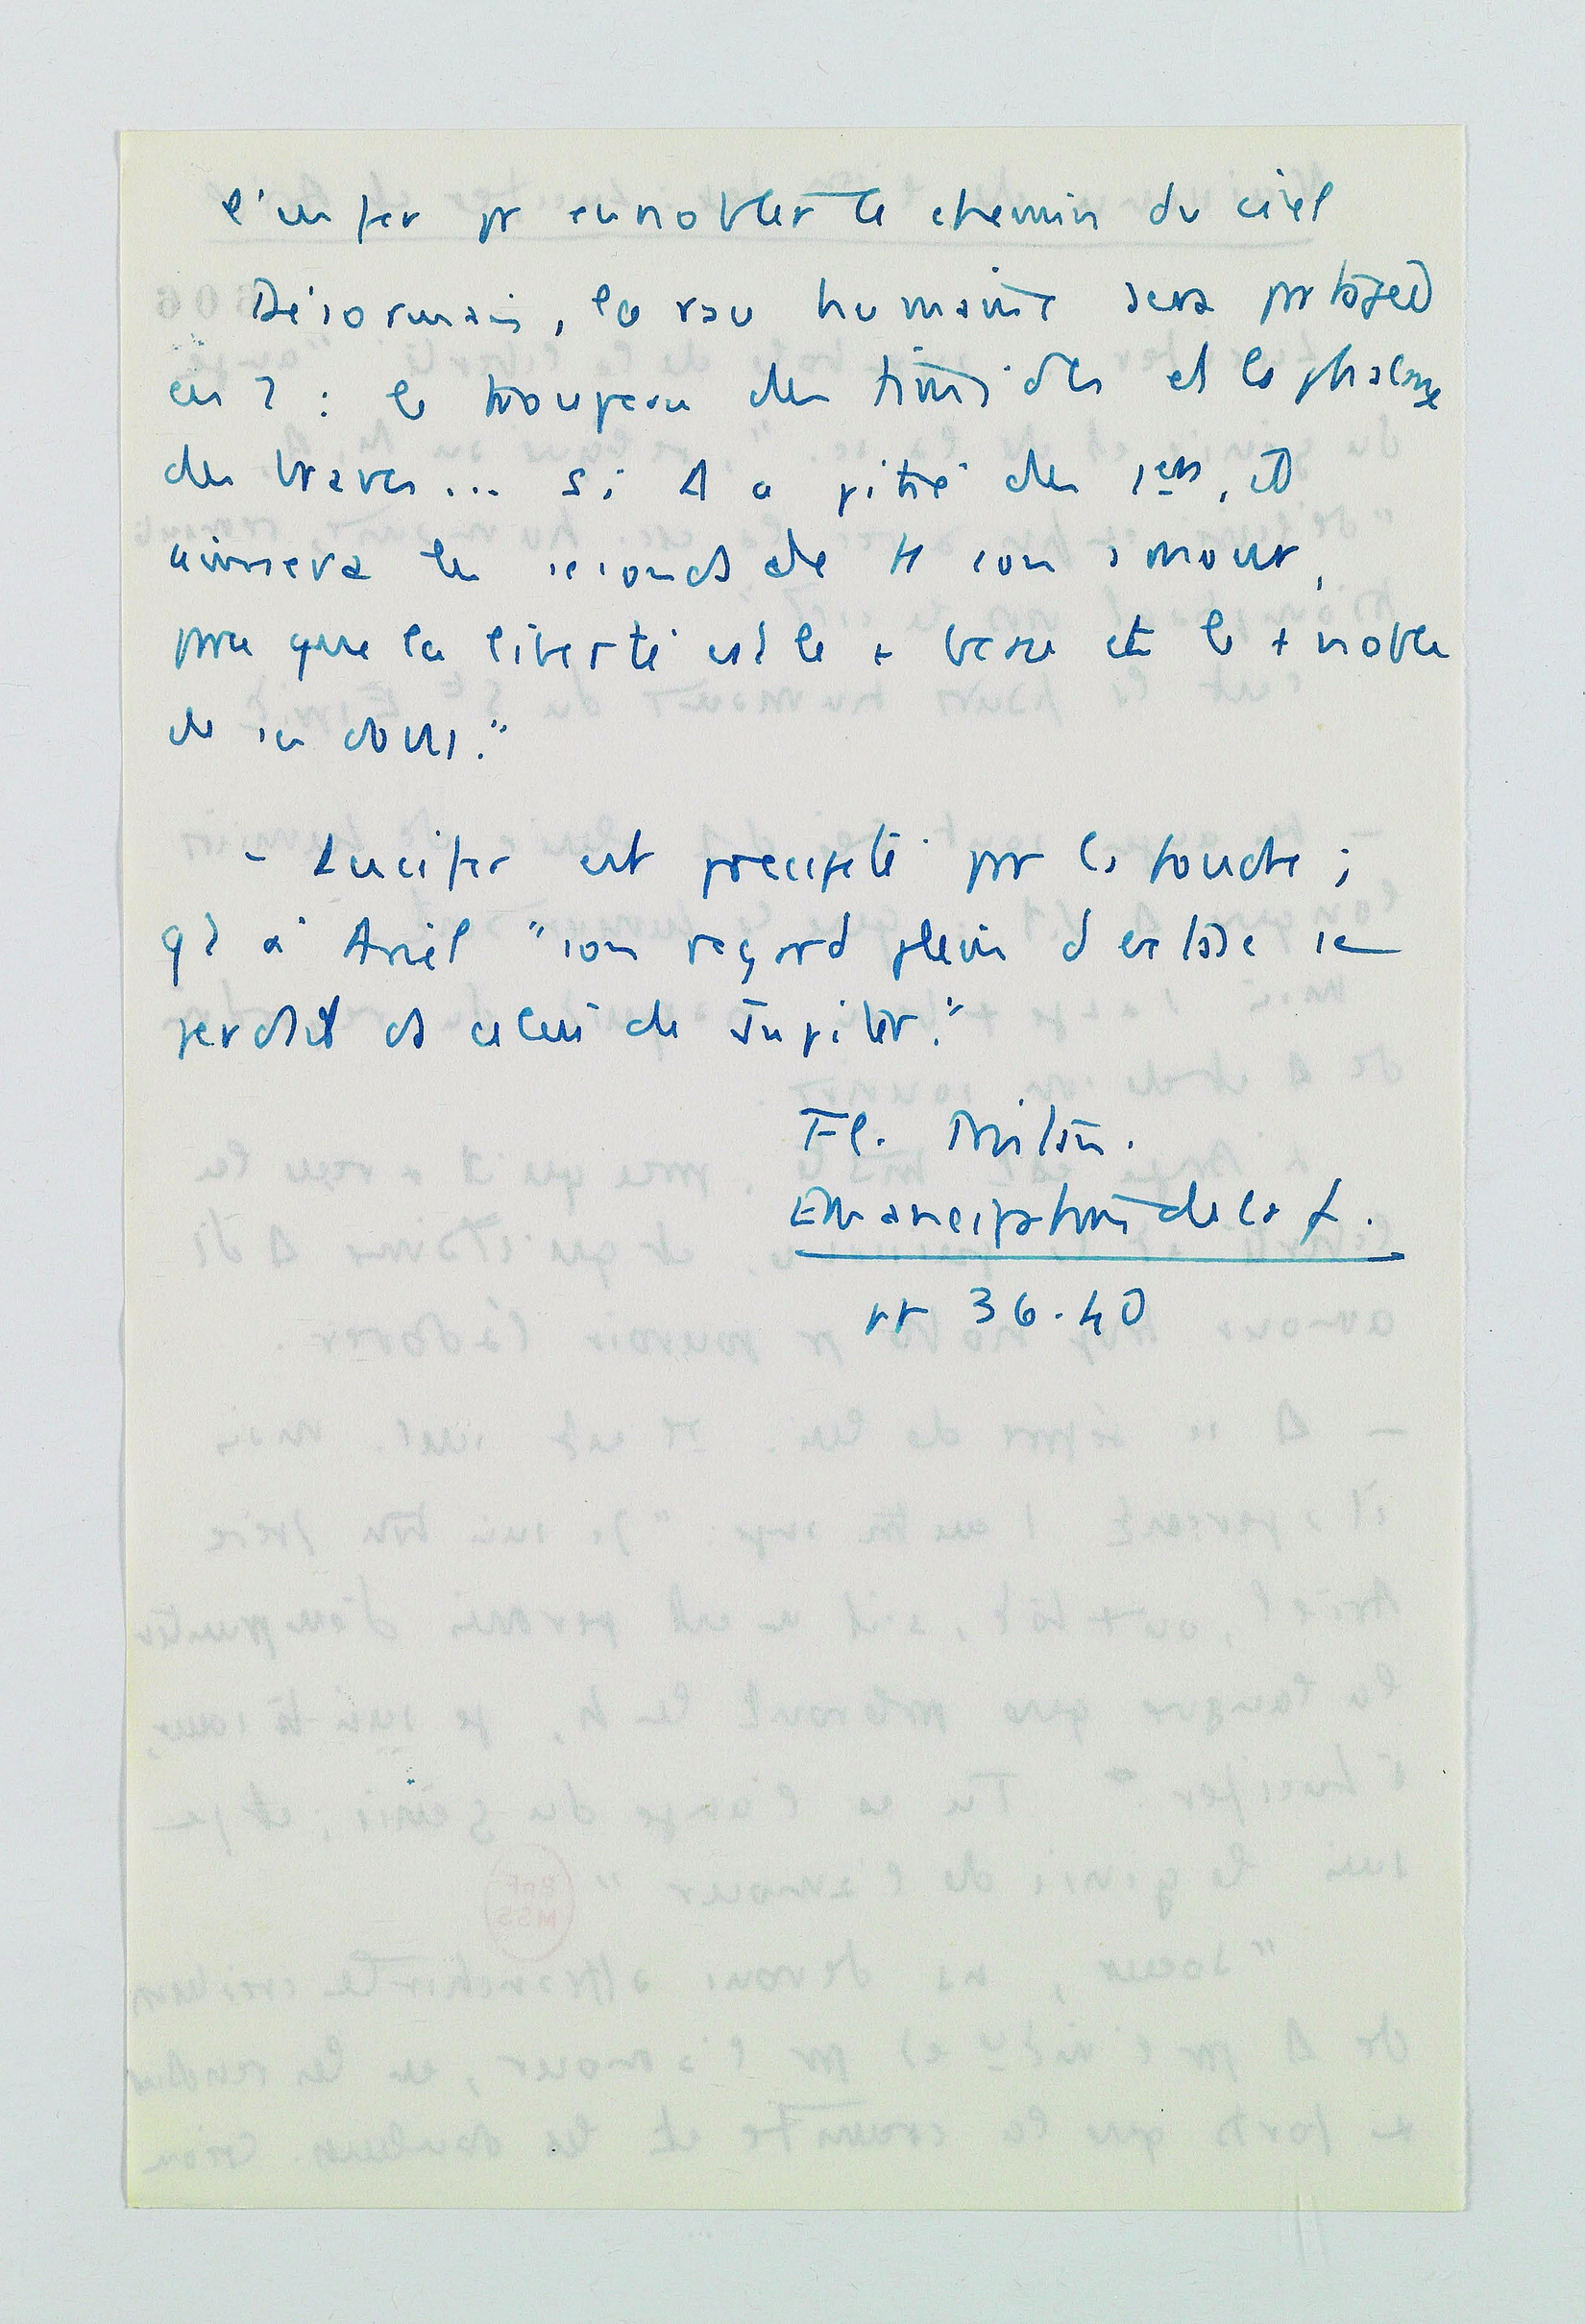 l'enfer pr ennoblir le chemin du ciel
Désormais, la race humaine sera partagée
en 2 : le troupeau des timides et la phalange
des braves... Si Δ a pitié des 1ers, il
aimera les seconds de tt son amour,
parce que la liberté est le + beau et le + noble
de ses dons."
- Lucifer est précipité par la foudre ;
qt à Ariel "son regard plein d'extase se
perdit ds celui de Jupiter."
Fl.
Emancipation de la f.
pp 36-40